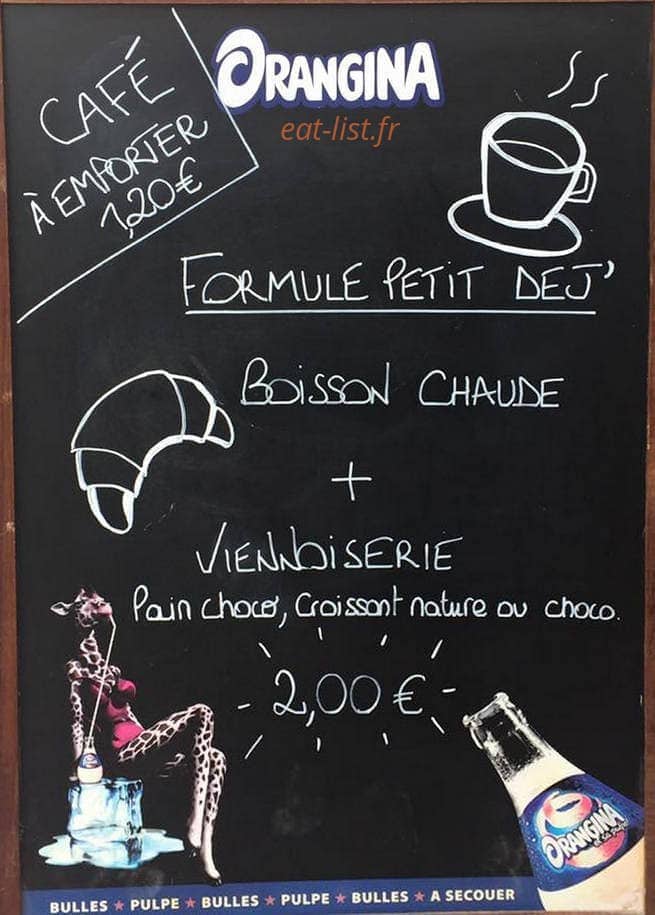 CAFÉ
À EMPORTER
1,20€
ORANGINA
eat-list.fr
FORMULE PETIT DEJ'
BOISSON CHAUDE
+
VIENNOISERIE
Pain choco, Croissant nature ou choco.
2,00 €
ORANGINA
et sa pulpe
BULLES ★ PULPE ★ BULLES ★ PULPE ★ BULLES ★ A SECOUER